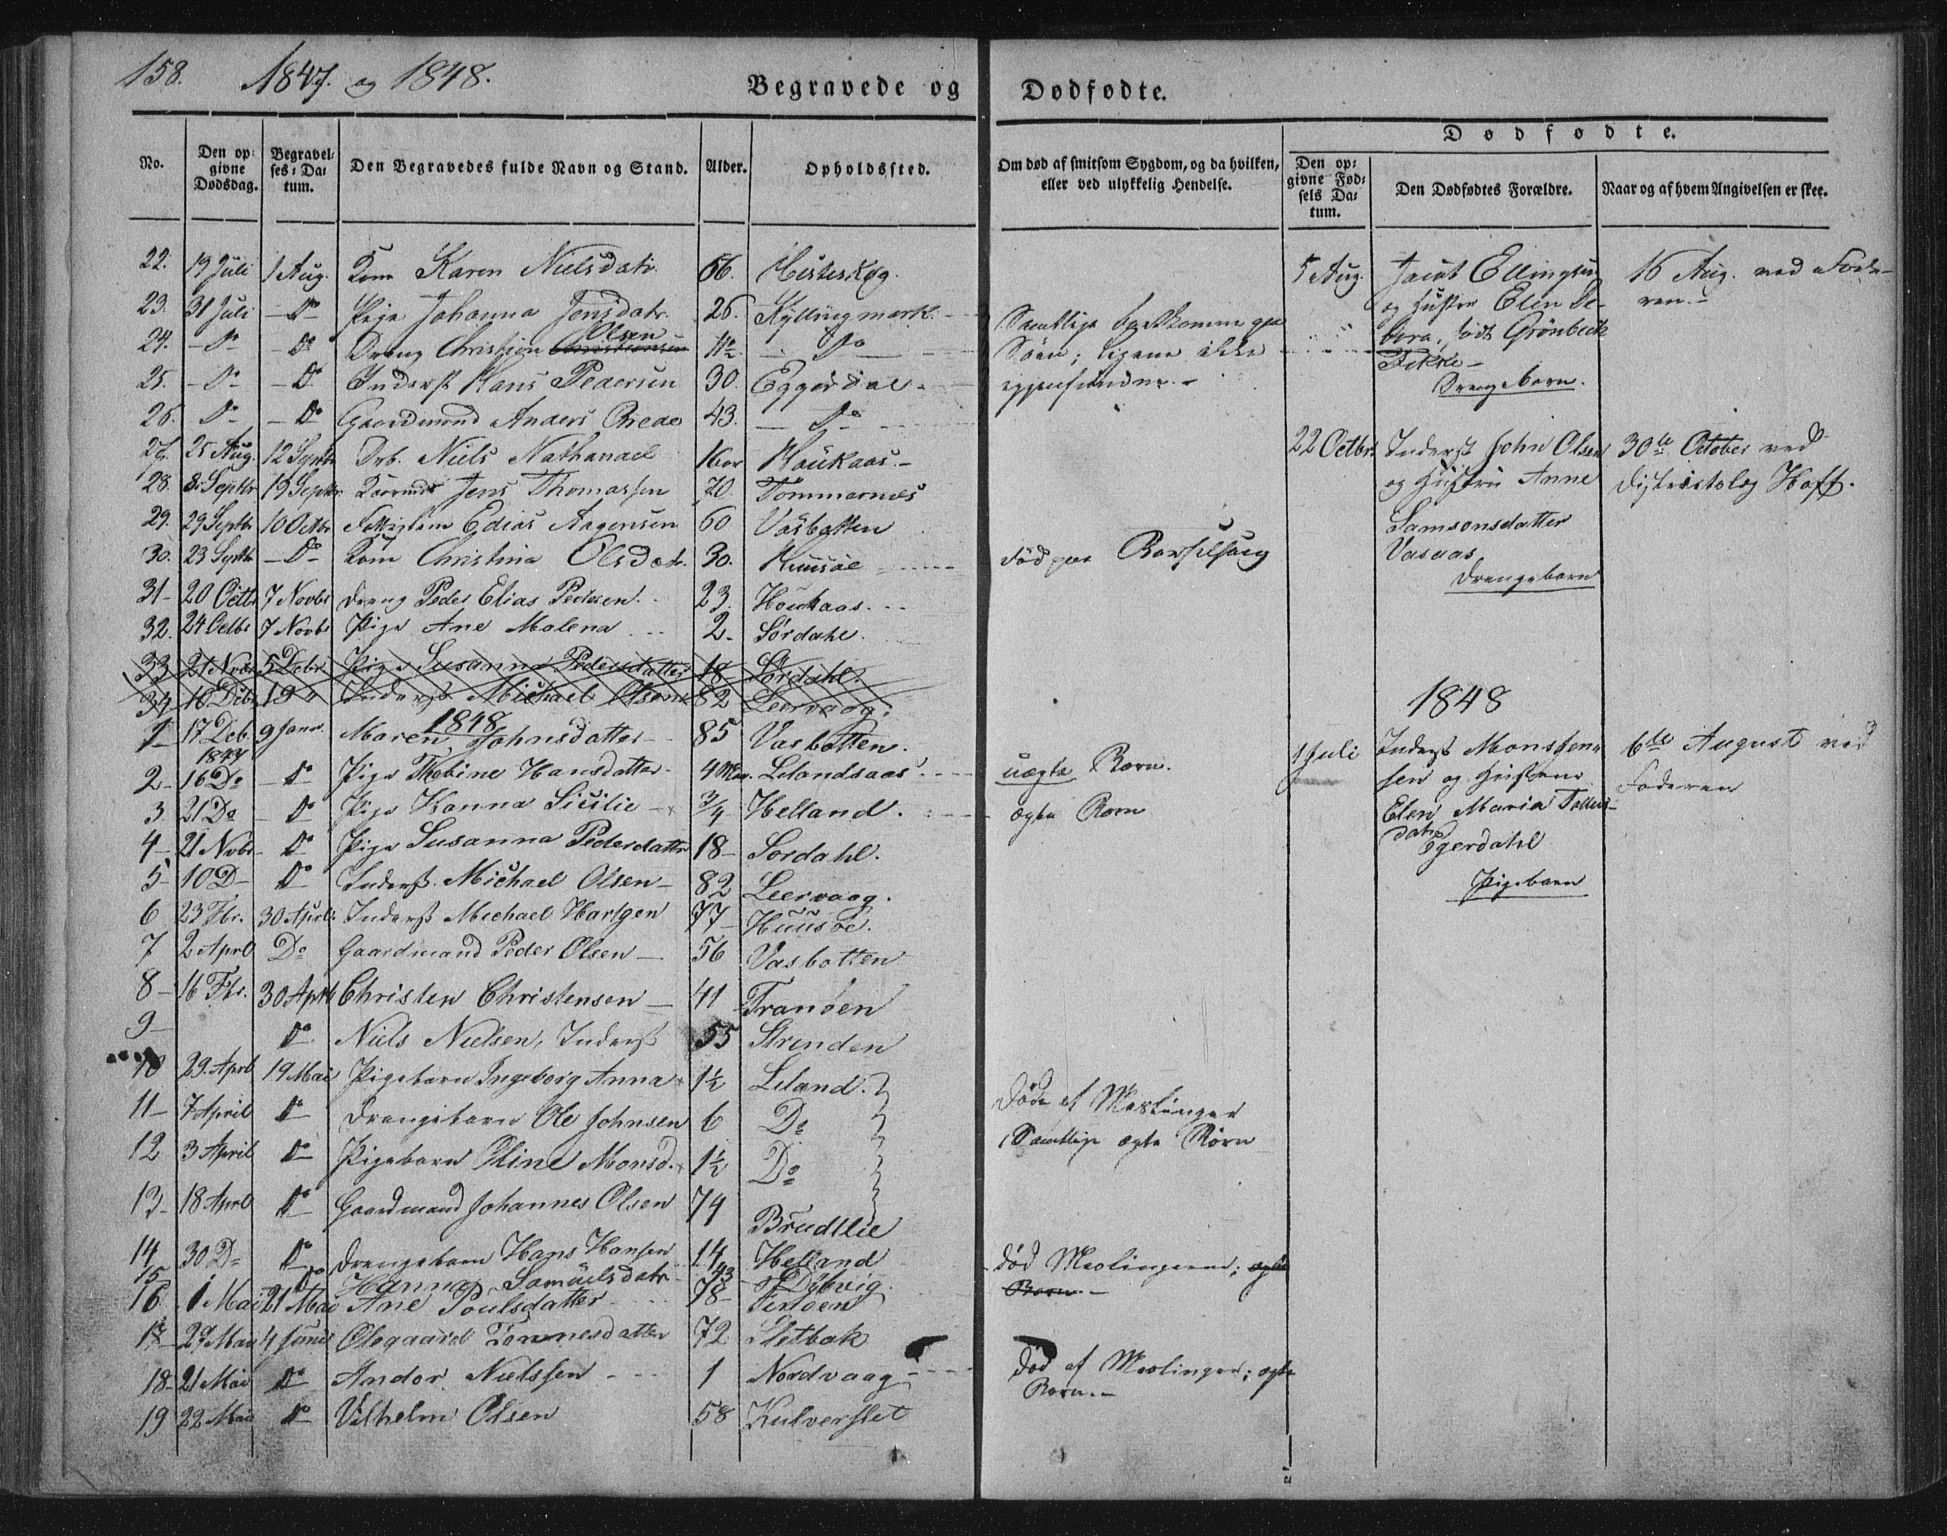 158. 1847. og 1848.
Begravede og Dødfødte.
No.
Den opgivne Dødsdag.
Begravelses-Datum.
Den Begravedes fulde Navn og Stand.
Alder.
Opholdssted.
Om død af smitsom Sygdom, og da hvilken, eller ved ulykkelig Hendelse.
Dødfødte.
Den opgivne Fødsels Datum.
Den Dødfødtes Forældre.
Naar og af hvem Angivelsen er skee.
22. 19 Juli 1 Aug. Kone Karen Nielsdatr. 66. Hesteskog.
23. 31 Juli - Do Pige Johanna Jensdatr. 26. Kyllingmark.
24. - Do - Do Dreng Christian Olsen 11½ - Do
25. - Do - Do Inderst Hans Pedersen 30. Eggerdal
26. Do - Do Gaardmand Anders Brede 43. - Do -
27. 25 Aug. 12 Septbr Drb. Niels Nathanael Houkaas.
28. 8 Septbr 19 Septbr Jens Thomassen 70. Tommernes
29. 29 Septbr 10 Octbr Edias Aagensen 60 Vasbotten
30. 23 Septbr - Do Kone Christina Olsdatr. 30. Huusøe
31- 20 Octbr 7 Novbr Dreng Peder Elias Pedersen. 23. Houkaas.
32. 24 Octbr 7 Novbr Pige Ane Malena 2. Sørdahl.
33 21 Novbr 5 Debr. Pige Susanna Pedersdatter 18 Sørdahl.
34 10 Debr 19 Inderst Michael Olsen 82 Leervaag.
1848
1- 17 Deb. 1847 9 Janr. Maren Johnsdatter 85 Vasbotten.
2- 16 Do - Do Pige Hansdatter 4 Lelandsaas
3 21 Do - Do Pige Hanna Sicilie ¾ Helland.
4- 21 Nvbr - Do Pige Susanna Pedersdattr 18- Sordahl.
5- 10 D- Do Inderst. Michael Olsen- 82 Leervaag.
6 23 Fbr. 30 April Inderst Michael Hartgen 77 Huusøe.
7 2 Aprl Do Gaardmand Peder Olsen- 56 Vasbotten
8- 16 Fbr. 30 April Christen Christensen- 41 Tranøen
9- Do Niels Nielsen, Inderst 55 Strinden
10 29. Aprl 19 Mai Pigebarn Ingeborg Anna 1½ Leland.
11- 7 April Do Drengebarn Ole Johnsen 6 Do
12 3 April Do Pigebarn Oline Monsd. 1½ Do
13- 18 Aprl Do Gaardmand Johannes Olsen 74 Brudtlie
14 30 D- Do Drengebarn Hans Hansen 14 Helland
15 Do Hanna Samuelsdatr 43 Dybvig.
16 1 Mai 21 Mai Ane Poulsdatter 78-
17- 27 Mai 4 Juni Olegaard Tønnesdatter 72 Sletbak
18- 21 Mai Do Andor Nielssen 1 Nordvaag
19 22 Mai Do Vilhelm Olsen 58 Kulverslet
Samtlige bortkomne paa
Søen; Ligene ikke
igjenfundne.-
død paa Barselseng
uægte Barn.
ægte Barn
Døde af Meslinger
Samtlige ægte Børn
død Meslingerne; ægte
Barn.-
død af Meslinger; ægte
Barn.-
5 Aug. Jacob Ellingsen
og Hustru Elen De-
bora, født Grønbeck
Drengebarn.
16 Aug. ved Fade-
ren.-
22 Octbr. Inderst John Olsen
og Hustru Anne
Samsonsdatter
Vasaas
Drengebarn
30te October ved
Districtslæg Hoff.
1848
1 Juli Inderst Mons Jen-
sen og Hustrue
Elen Maria Tollers-
datr Egerdahl
Pigebarn
6te August ved
Faderen